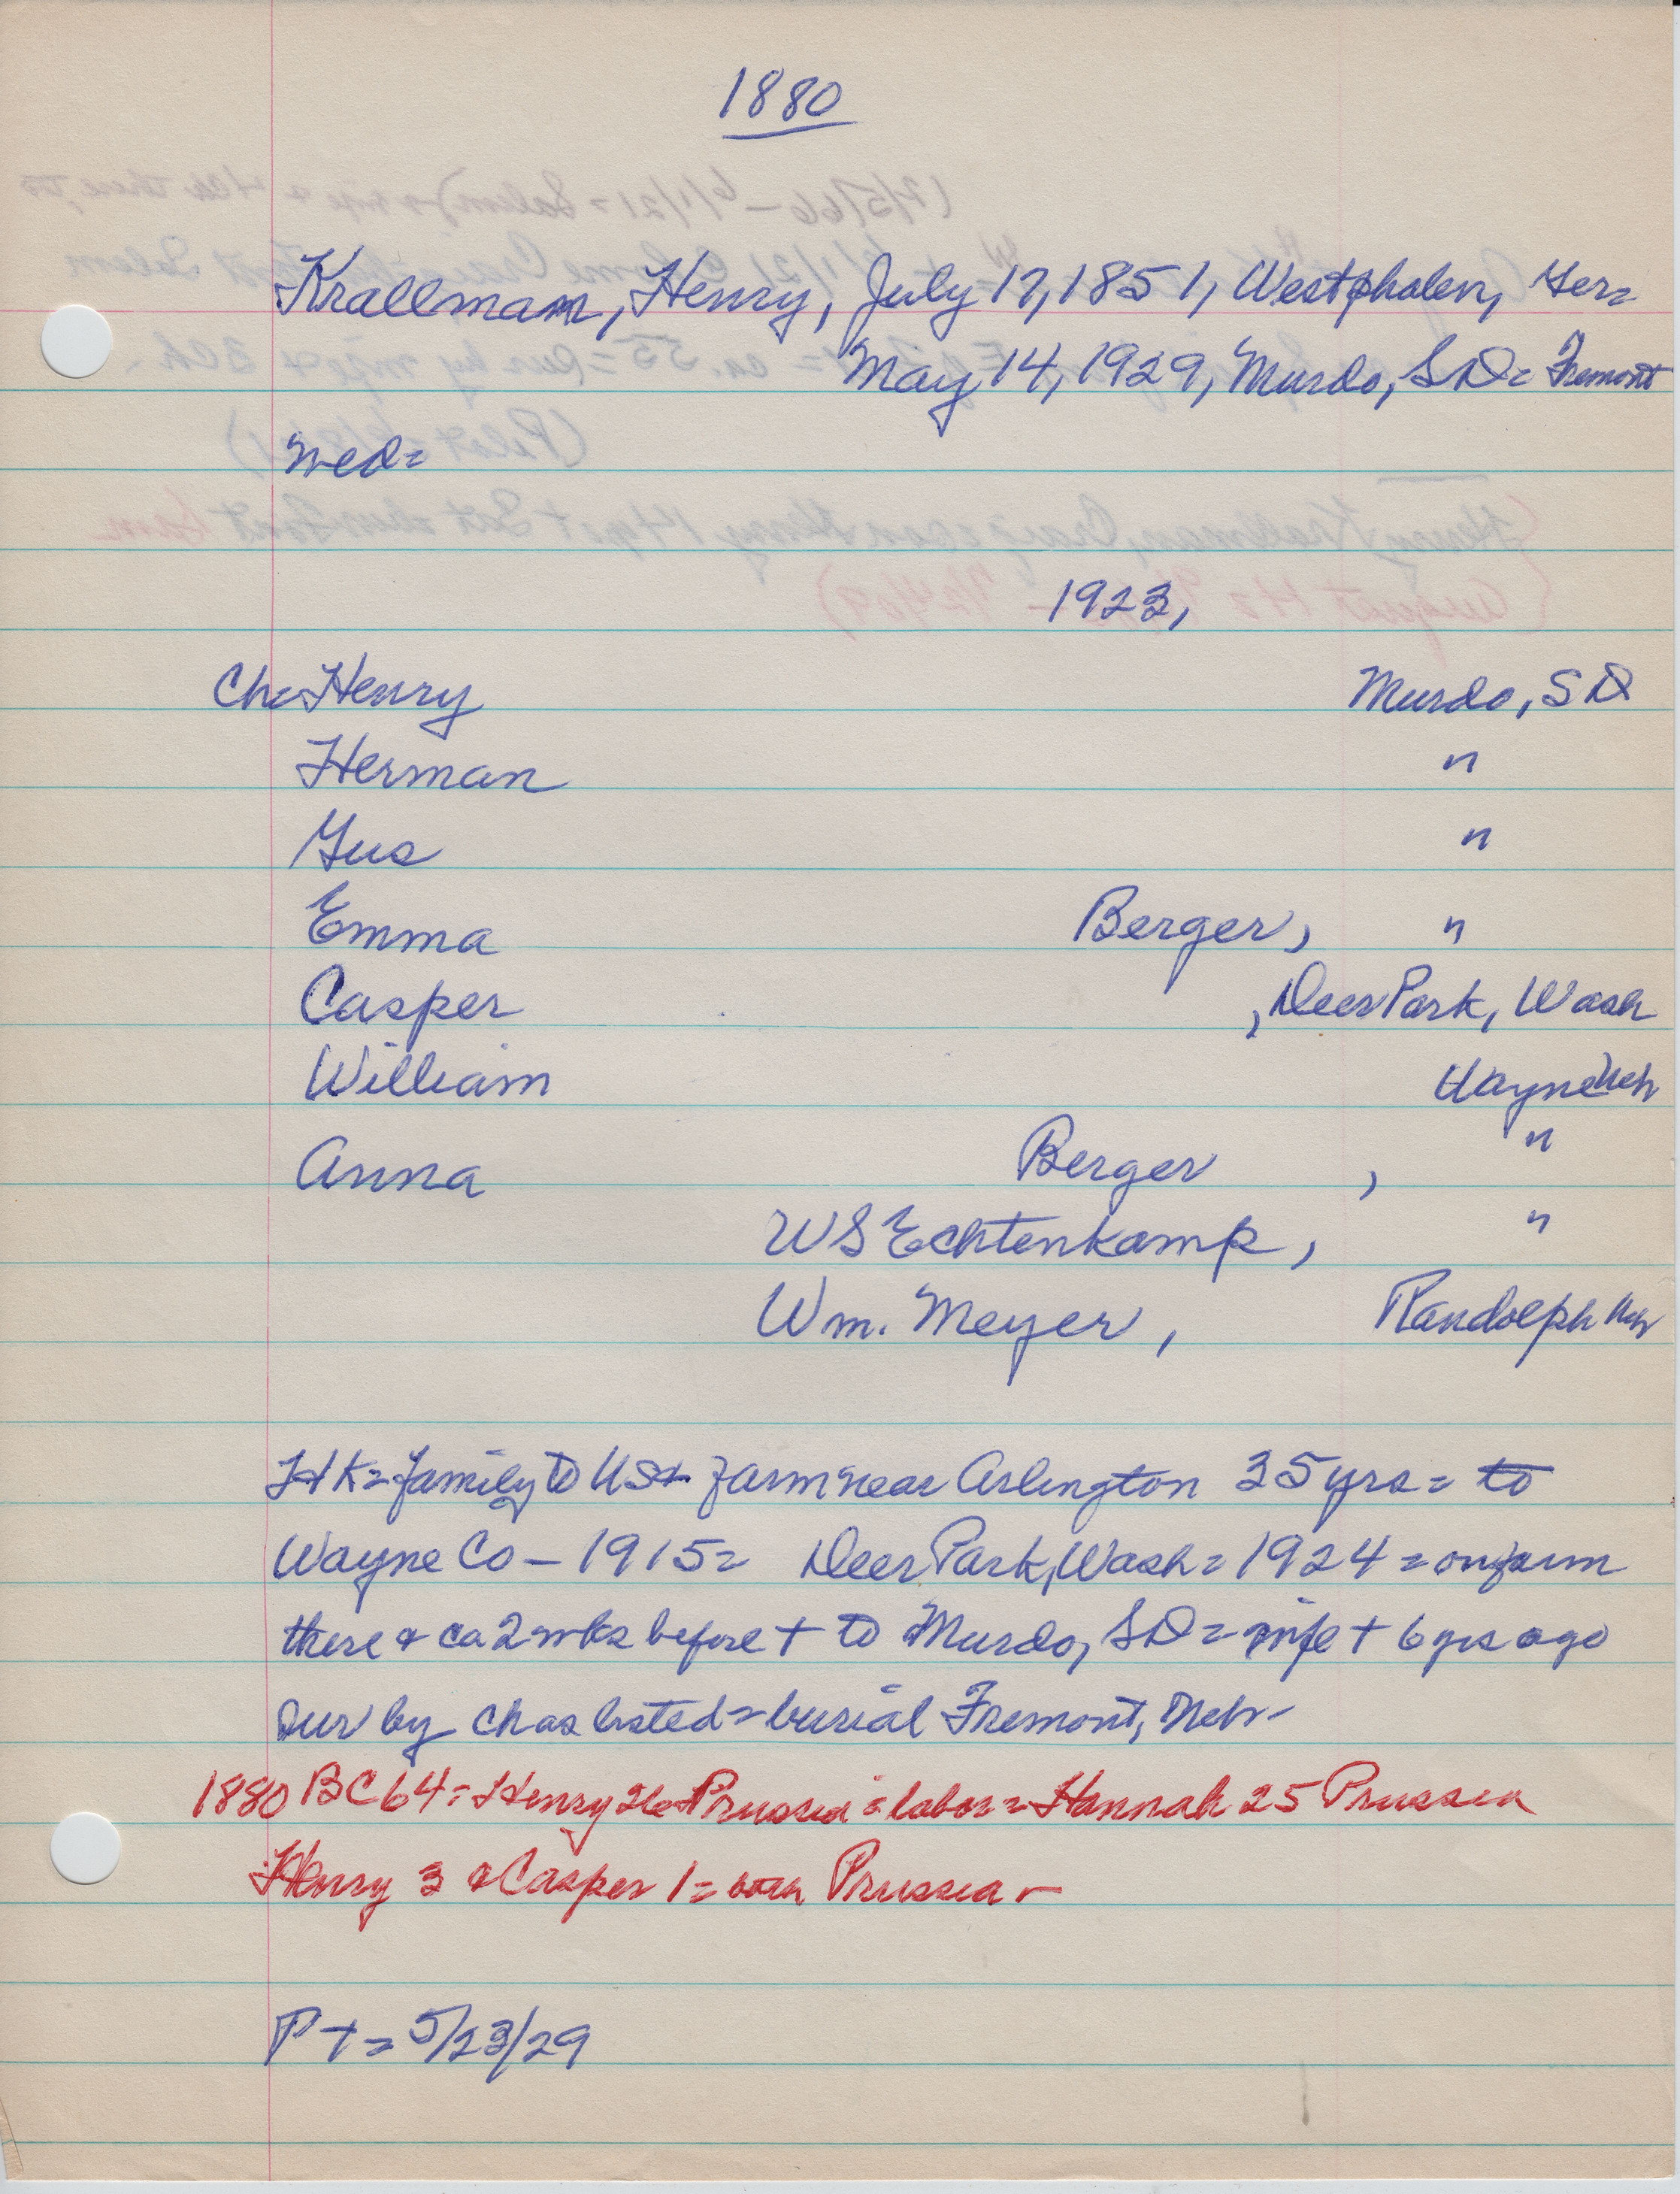 1880
Krallman, Henry, July 17, 1851, Westphalen, Ger=
May 14, 1929, Murdo, SD= Fremont
med=
1923,
Ch= Henry Murdo, SD
Herman "
Gus "
Emma Berger, "
Casper , Deer Park, Wash
William Wayne Neb
Anna Berger , "
WS Echtenkamp, "
Wm. Meyer, Randolph Neb
HK= family to US+ farm near Arlington 35 yrs= to
Wayne Co – 1915= Deer Park, Wash= 1924= on farm
there & ca 2 wks before + to Murdo, SD= wife + 6 yrs ago
sur by ch as listed= burial Fremont, Neb-
1880 BC 64= Henry 26 Prussia= labor= Hannah 25 Prussia
Henry 3 & Casper 1= both Prussia-
PT= 5/23/29